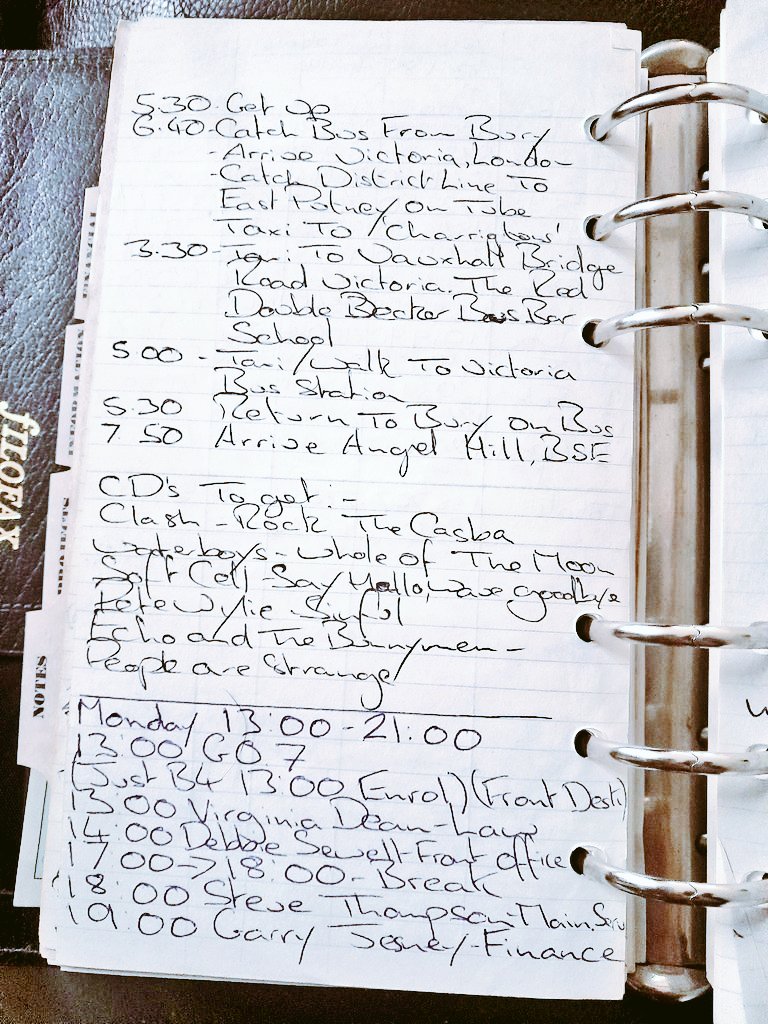 5.30. Get up
6.40. Catch Bus From Bury
- Arrive Victoria, London
- Catch District Line To
East Putney on Tube
Taxi To 'Charringtons'
3.30 - Taxi To Vauxhall Bridge
Road Victoria. The Red
Double Decker Bus Bar
School
5 00 - Taxi/walk To Victoria
Bus Station
5.30 Return To Bury on Bus
7 50 Arrive Angel Hill, BSE
CD's To get :-
Clash - Rock The Casba
Waterboys - Whole of The Moon
Soft Cell - Say Hallo, wave goodbye
Pete Wylie - Sinful
Echo and The Bunnymen -
People are Strange
Monday 13:00 - 21:00
13:00 GO 7
(Just B4 13:00 Enrol) (Front Desk)
13:00 Virginia Dean - Law
14:00 Debbie Sewell - Front office
17:00 -> 18:00 - Break
18:00 Steve Thompson - Main. Serv
19:00 Garry - Finance
filOFAX
NOTES